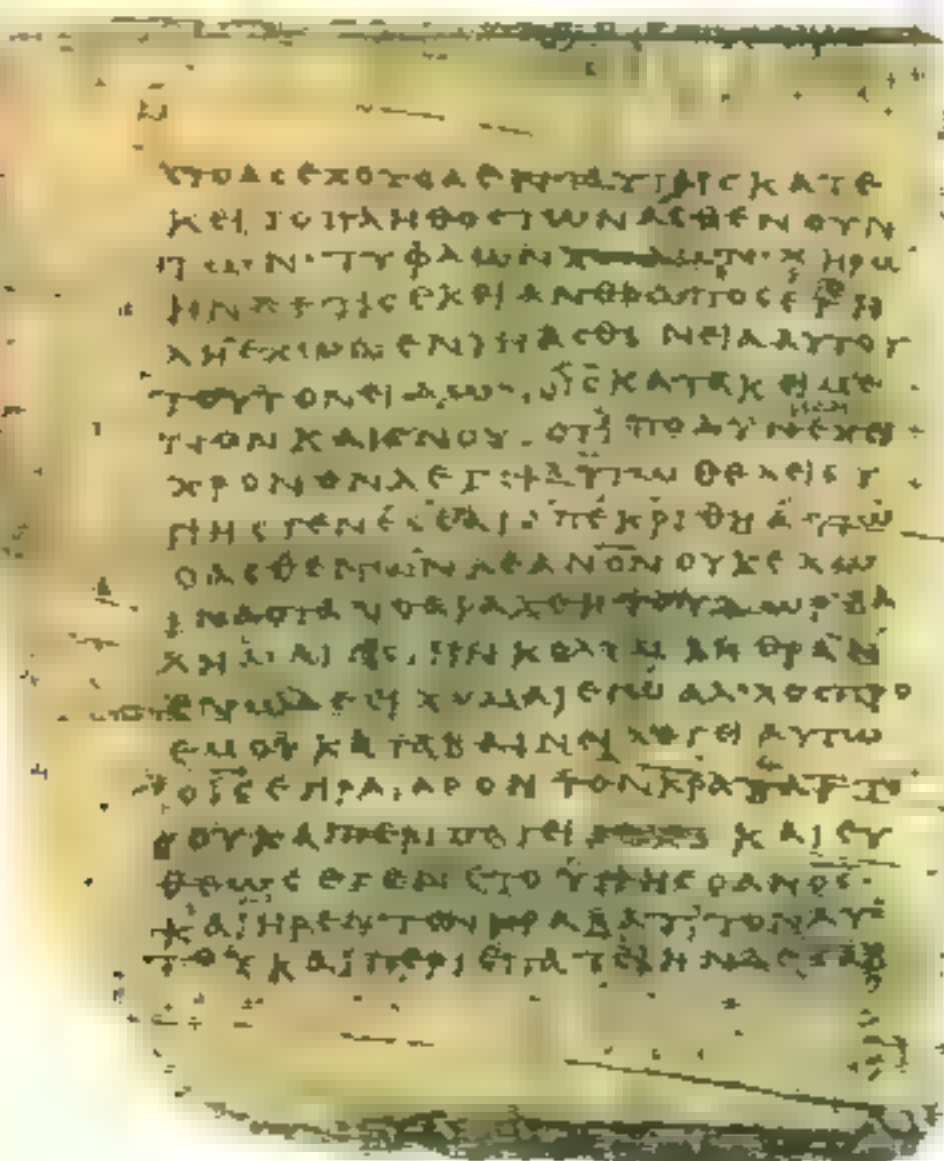 ϹΤΟΑϹ ΕΧΟΥϹΑ ΕΝ ΤΑΥΤΑΙϹ ΚΑΤΕ
ΚΕΙΤΟ ΠΛΗΘΟϹ ΤΩΝ ΑϹΘΕΝΟΥΝ
ΤΩΝ· ΤΥΦΛΩΝ ΧΩΛΩΝ· ΞΗΡΩ
ΗΝ ΔΕ ΤΙϹ ΕΚΕΙ ΑΝΘΡΩΠΟϹ
ΕΧΩΝ ΕΝ ΤΗ ΑϹΘΕΝΕΙΑ ΑΥΤΟΥ
ΤΟΥΤΟΝ ΕΙΔΩΝ Ο ΙϹ ΚΑΤΑΚΕΙΜΕ
ΝΟΝ ΚΑΙ ΓΝΟΥϹ ΟΤΙ ΠΟΛΥΝ ΕΧΕΙ
ΧΡΟΝΟΝ ΛΕΓΕΙ ΑΥΤΩ ΘΕΛΕΙϹ Υ
ΓΙΗϹ ΓΕΝΕϹΘΑΙ· ΑΠΕΚΡΙΘΗ ΑΥΤΩ
Ο ΑϹΘΕΝΩΝ ΑΝΟΝ ΟΥΚ ΕΧΩ
ΙΝΑ ΟΤΑΝ ΤΑΡΑΧΘΗ ΤΟ ΥΔΩΡ ΒΑ
ΛΗ ΜΕ ΕΙϹ ΤΗΝ ΚΟΛΥΜΒΗΘΡΑΝ
ΕΝ Ω ΔΕ ΕΡΧΟΜΑΙ ΕΓΩ ΑΛΛΟϹ ΠΡΟ
ΕΜΟΥ ΚΑΤΑΒΑΙΝΕΙ ΛΕΓΕΙ ΑΥΤΩ
Ο ΙϹ ΕΓΕΙΡΑΙ ΑΡΟΝ ΤΟΝ ΚΡΑΒΑΤΤΟ
ϹΟΥ ΚΑΙ ΠΕΡΙΠΑΤΕΙ ΚΑΙ ΕΥ
ΘΕΩϹ ΕΓΕΝΕΤΟ ΥΓΙΗϹ Ο ΑΝΟϹ·
ΚΑΙ ΗΡΕΝ ΤΟΝ ΚΡΑΒΑΤΤΟΝ ΑΥ
ΤΟΥ ΚΑΙ ΠΕΡΙΕΠΑΤΕΙ ΗΝ ΔΕ ϹΑΒ